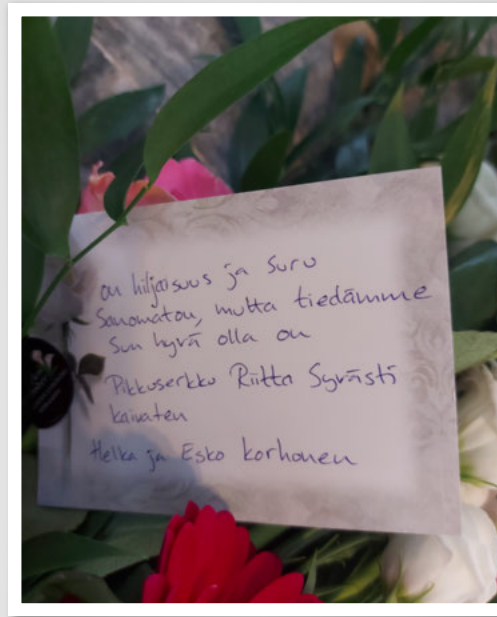 on hiljaisuus ja suru
Sanomaton, mutta tiedämme
Sun hyvä olla on
Pikkuserkku Riitta Syvästi
kaivaten
Helka ja Esko Korhonen